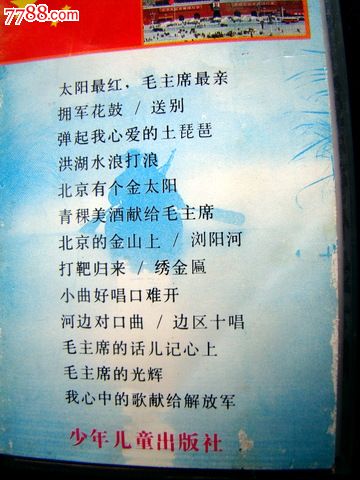 7788.com
太阳最红，毛主席最亲
拥军花鼓 / 送别
弹起我心爱的土琵琶
洪湖水浪打浪
北京有个金太阳
青稞美酒献给毛主席
北京的金山上 / 浏阳河
打靶归来 / 绣金匾
小曲好唱口难开
河边对口曲 / 边区十唱
毛主席的话儿记心上
毛主席的光辉
我心中的歌献给解放军
少年儿童出版社